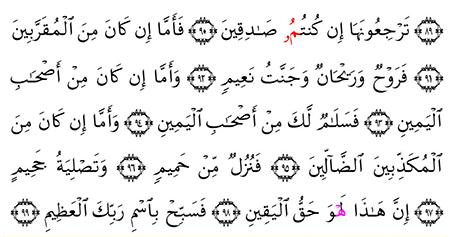 ﴿٨٩﴾ تَرْجِعُونَهَا إِن كُنتُمُۥ صَـٰدِقِينَ ﴿٩٠﴾ فَأَمَّا إِن كَانَ مِنَ ٱلْمُقَرَّبِينَ
﴿٩١﴾ فَرَوْحٌ وَرَيْحَانٌ وَجَنَّتُ نَعِيمٍ ﴿٩٢﴾ وَأَمَّا إِن كَانَ مِنْ أَصْحَـٰبِ
ٱلْيَمِينِ ﴿٩٣﴾ فَسَلَـٰمٌ لَّكَ مِنْ أَصْحَـٰبِ ٱلْيَمِينِ ﴿٩٤﴾ وَأَمَّا إِن كَانَ مِنَ
ٱلْمُكَذِّبِينَ ٱلضَّآلِّينَ ﴿٩٥﴾ فَنُزُلٌ مِّنْ حَمِيمٍ ﴿٩٦﴾ وَتَصْلِيَةُ جَحِيمٍ
﴿٩٧﴾ إِنَّ هَـٰذَا لَهْوَ حَقُّ ٱلْيَقِينِ ﴿٩٨﴾ فَسَبِّحْ بِٱسْمِ رَبِّكَ ٱلْعَظِيمِ ﴿٩٩﴾